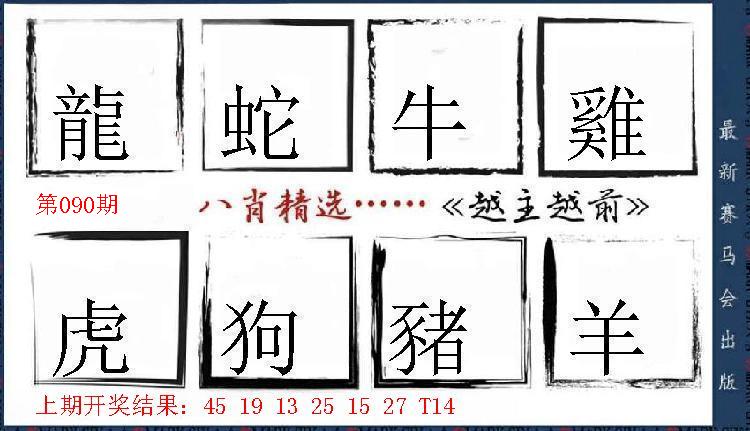 龍 蛇 牛 雞
第090期 八肖精选…… 《越主越前》
虎 狗 豬 羊
上期开奖结果：45 19 13 25 15 27 T14
最新赛马会出版